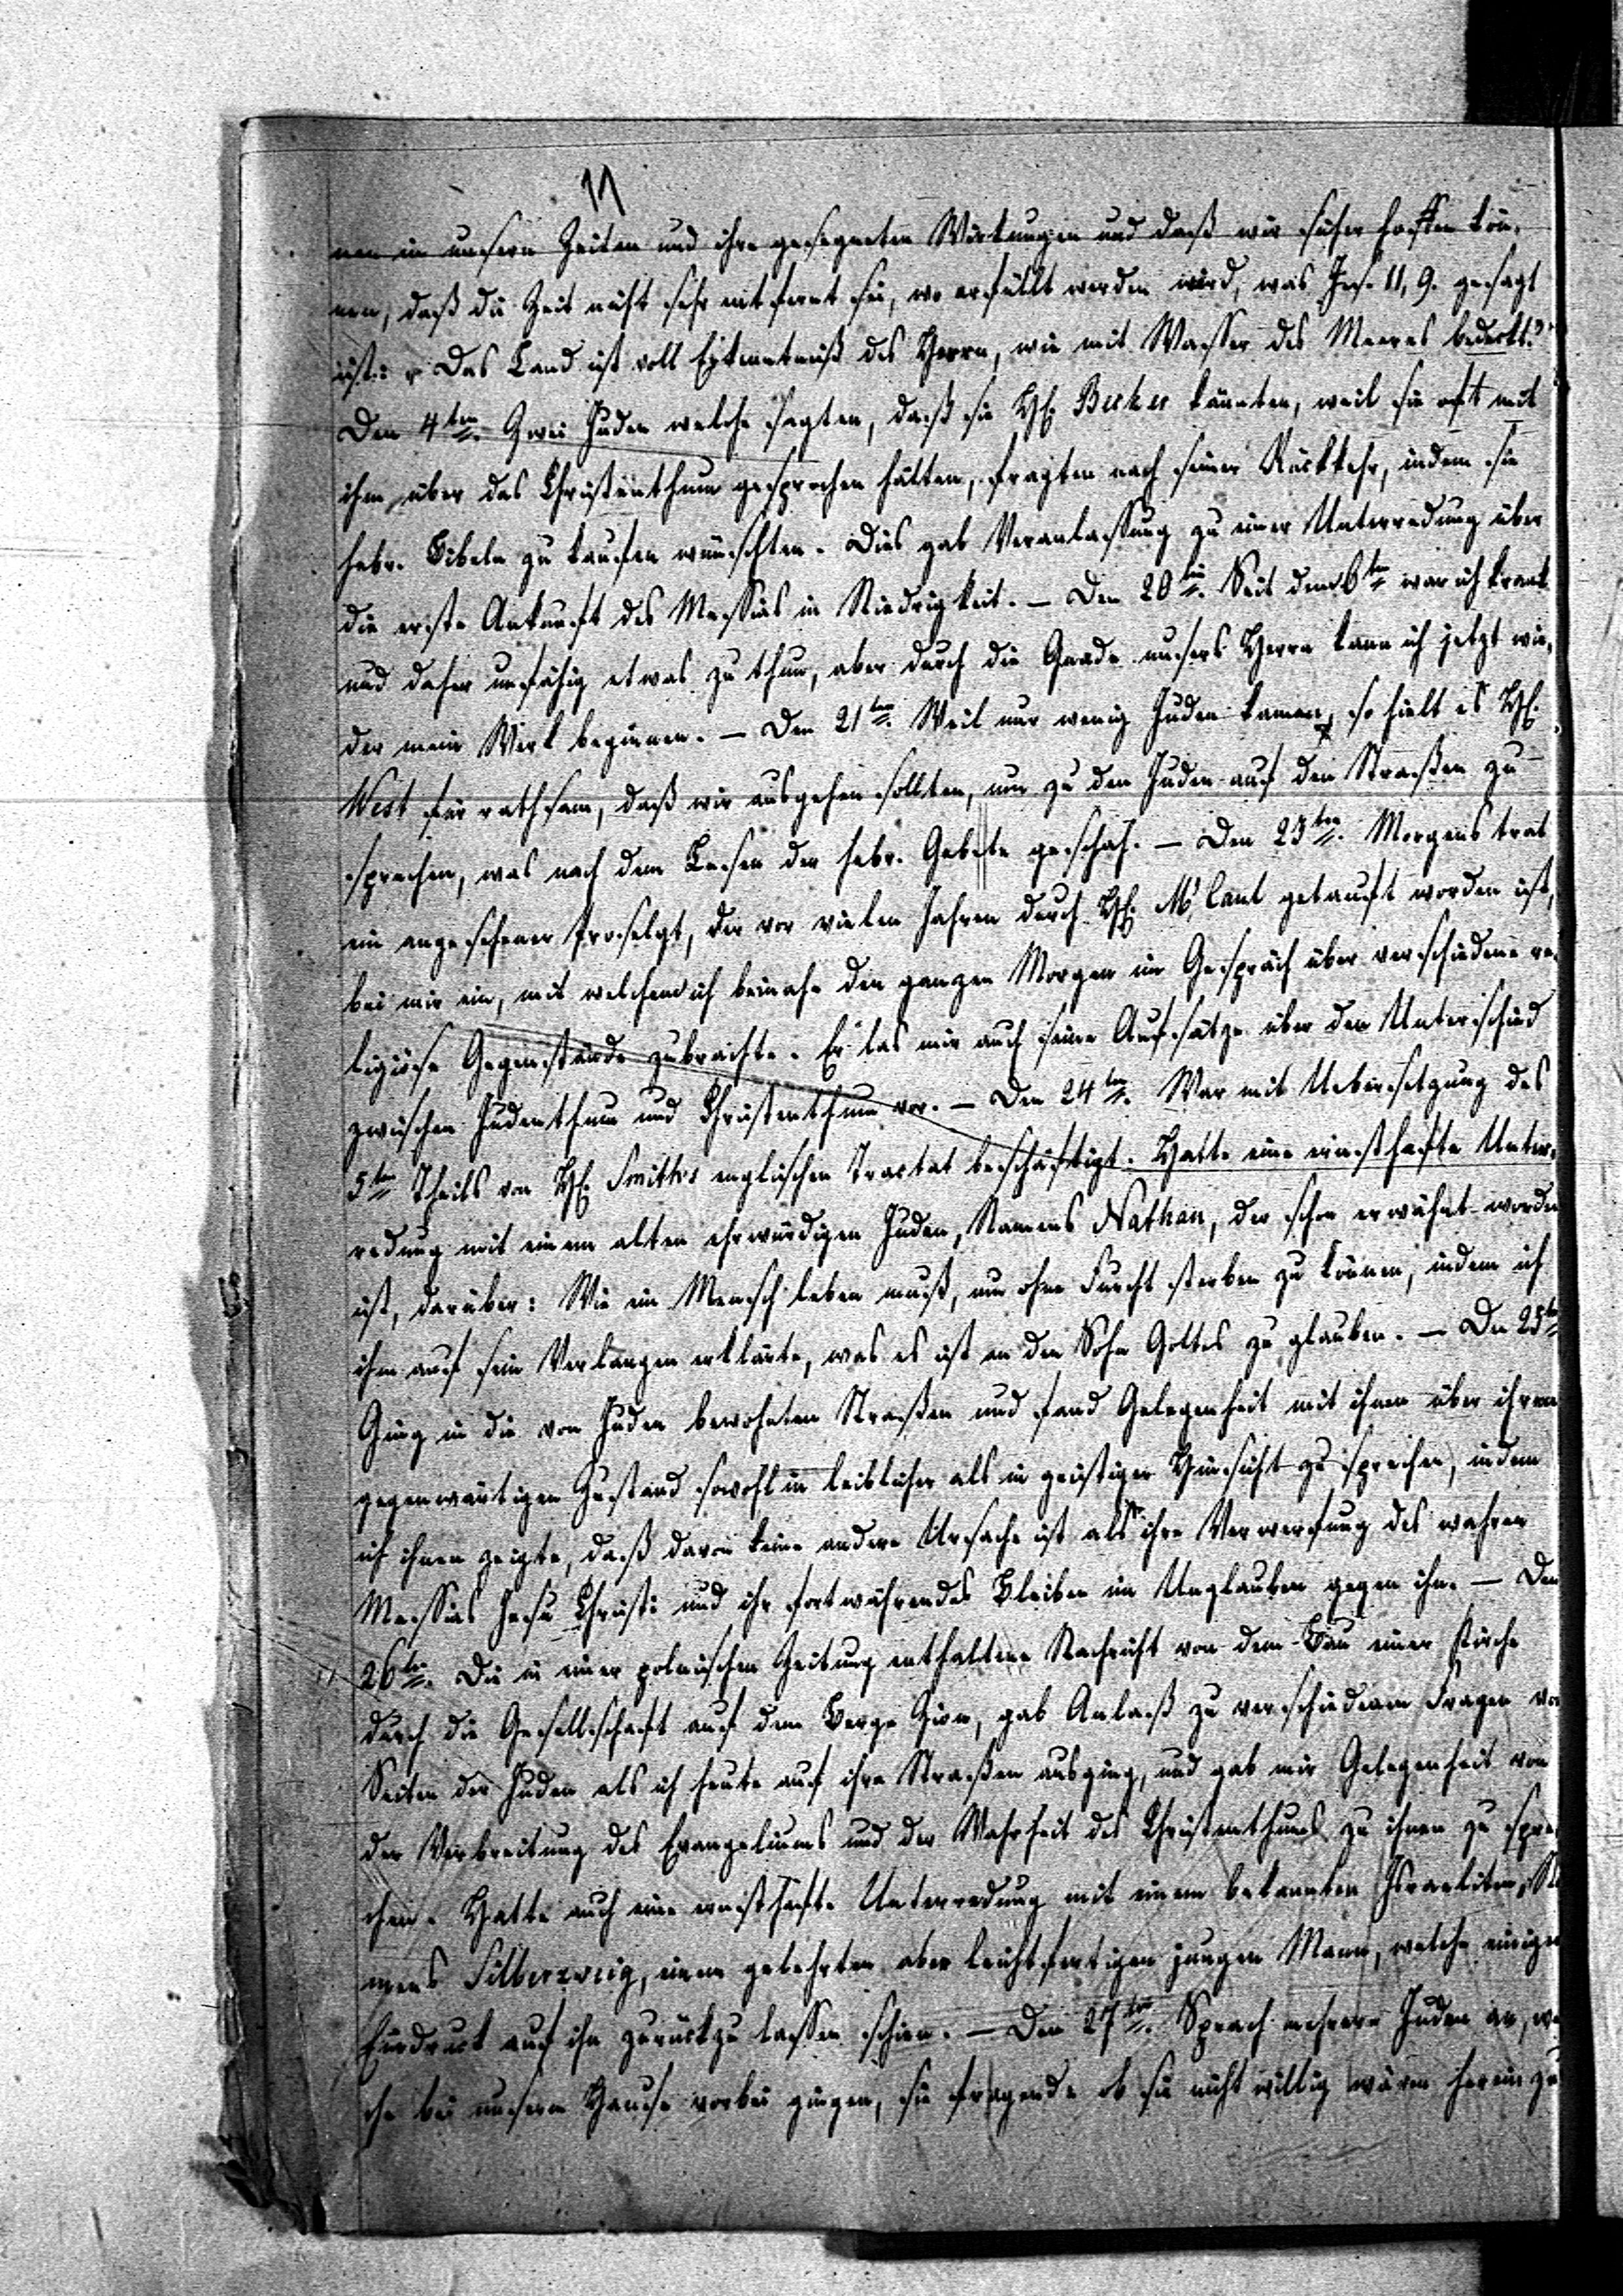 11
nen in unsern Zeiten und ihre gesegneten Wirkungen und daß wir sicher hoffen kön-
nen, daß die Zeit nicht sehr entfernt sei, wo erfüllt werden wird, was Jes. 11, 9. gesagt
ist: „Das Land ist voll Erkenntniß des Herrn, wie mit Wasser des Meeres bedeckt."
Den 4ten. Zwei Juden welche sagten, daß sie H. Becker kännten, weil sie oft mit
ihm über das Christenthum gesprochen hätten, fragten nach seiner Rückkehr, indem sie
hebr. Bibeln zu kaufen wünschten. Dies gab Veranlassung zu einer Unterredung über
die erste Ankunft des Messias in Niedrigkeit. — Den 20ten. Seit dem 6ten war ich krank
und daher unfähig etwas zu thun, aber durch die Gnade unsers Herrn kann ich jetzt wie-
der mein Werk beginnen. — Den 21ten. Weil nur wenig Juden kamen, so hielt es H.
West für rathsam, daß wir ausgehen sollten, um zu den Juden auf den Straßen zu
sprechen, was nach dem Lesen der hebr. Gebete geschah. — Den 23ten. Morgens trat
ein angesehener Proselyt, der vor vielen Jahren durch H. M'Caul getauft worden ist,
bei mir ein, mit welchem ich beinahe den ganzen Morgen im Gespräch über verschiedene re-
ligiöse Gegenstände zubrachte. Er las mir auch seine Aufsätze über den Unterschied
zwischen Judenthum und Christenthum vor. — Den 24ten. War mit Uebersetzung des
5ten Theils von H. Smith's englischen Tractat beschäftigt. Hatte eine ernsthafte Unter-
redung mit einem alten ehrwürdigen Juden, Namens Nathan, der schon erwähnt worden
ist, darüber: Wie ein Mensch leben muß, um ohne Furcht sterben zu können, indem ich
ihm auf sein Verlangen erklärte, was es ist an den Sohn Gottes zu glauben. — Den 25ten
Ging in die von Juden bewohnten Straßen und fand Gelegenheit mit ihnen über ihren
gegenwärtigen Zustand sowohl in leiblicher als in geistiger Hinsicht zu sprechen, indem
ich ihnen zeigte, daß davon keine andere Ursache ist als ihre Verwerfung des wahren
Messias Jesu Christi und ihr fortwährendes Bleiben im Unglauben gegen ihn. — Den
26ten. Die in einer polnischen Zeitung enthaltene Nachricht von dem Bau einer Kirche
durch die Gesellschaft auf dem Berge Zion, gab Anlaß zu verschiedenen Fragen von
Seiten der Juden als ich heute auf ihre Straßen ausging, und gab mir Gelegenheit von
der Verbreitung des Evangeliums und der Wahrheit des Christenthums zu ihnen zu spre-
chen. Hatte auch eine ernsthafte Unterredung mit einem bekannten Israeliten, Na-
mens Silberzweig, einem gelehrten aber leichtfertigen jungen Mann, welche einigen
Eindruck auf ihn zurückzulassen schien. — Den 27ten. Sprach mehrere Juden an, wel-
che bei unserm Hause vorbei gingen, sie fragende ob sie nicht willig wären herein zu